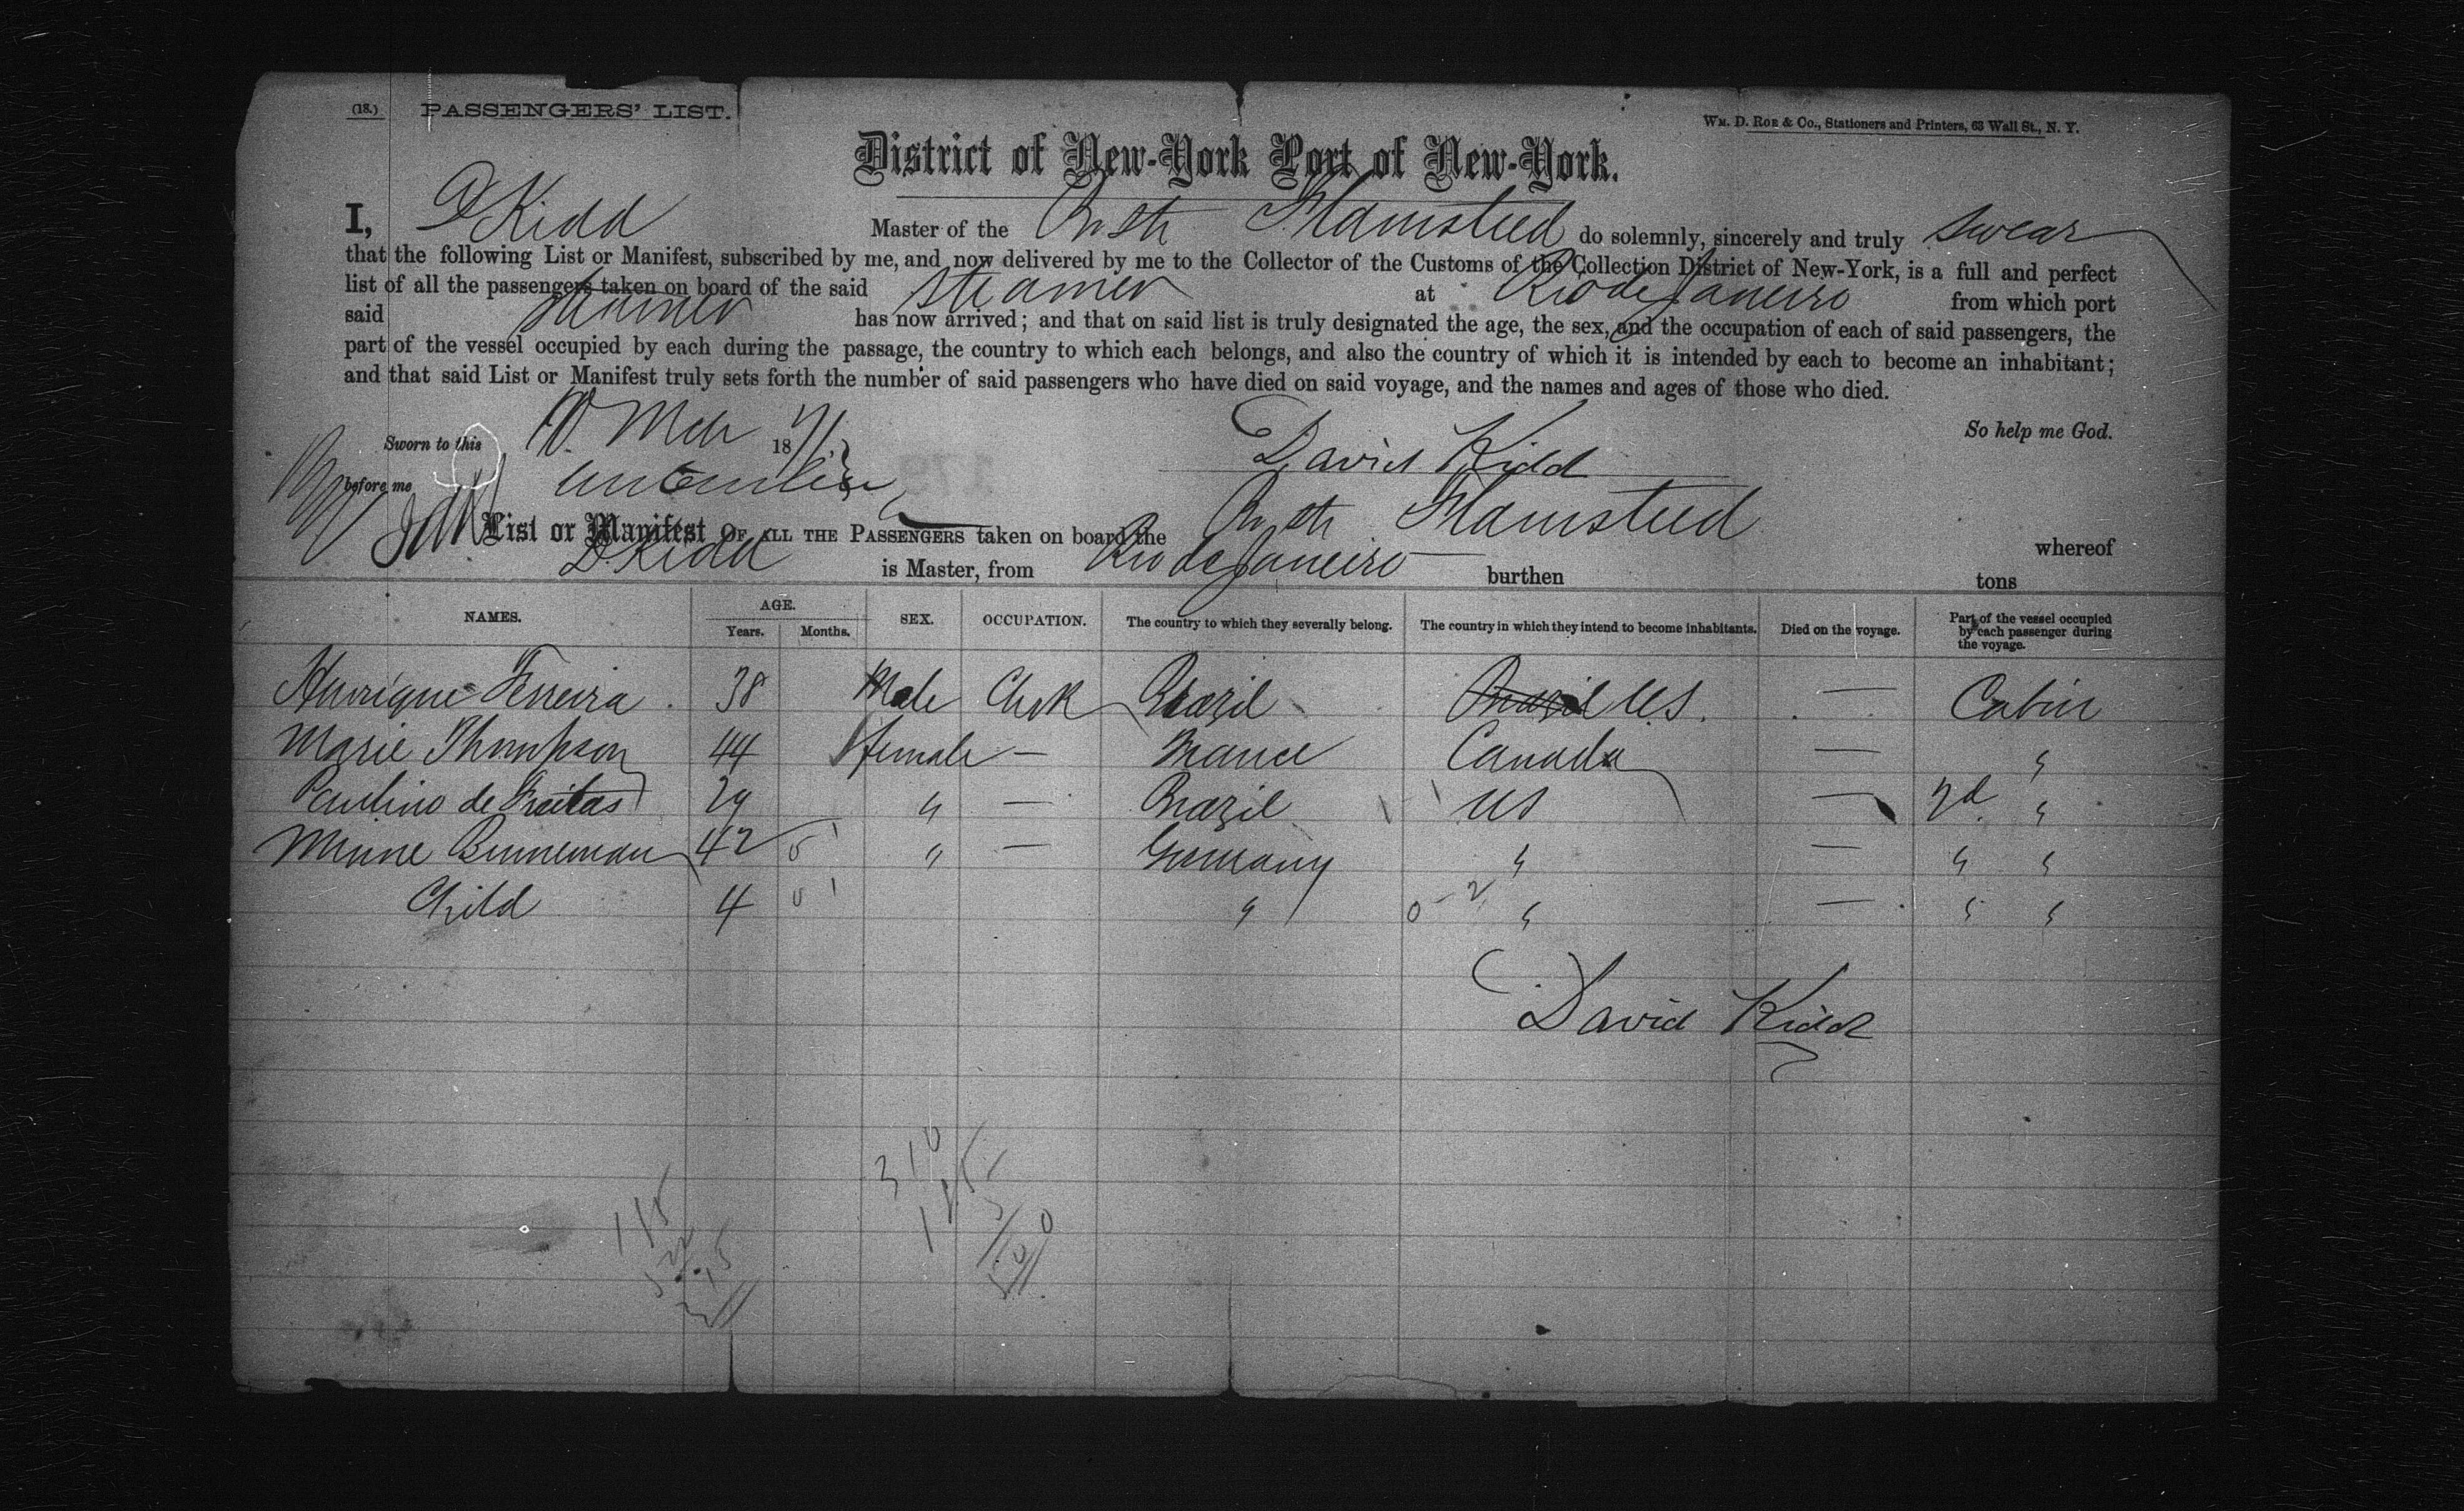 (18.) PASSENGERS' LIST.
WM. D. ROE & CO., Stationers and Printers, 63 Wall St., N. Y.
District of New-York Port of New-York.
I, D Kidd Master of the Br Str Flamsteed do solemnly, sincerely and truly swear
that the following List or Manifest, subscribed by me, and now delivered by me to the Collector of the Customs of the Collection District of New-York, is a full and perfect
list of all the passengers taken on board of the said steamer at Rio de Janeiro from which port
said steamer has now arrived; and that on said list is truly designated the age, the sex, and the occupation of each of said passengers, the
part of the vessel occupied by each during the passage, the country to which each belongs, and also the country of which it is intended by each to become an inhabitant;
and that said List or Manifest truly sets forth the number of said passengers who have died on said voyage, and the names and ages of those who died.
So help me God.
Sworn to this 10 Mch 18
before me
David Kidd
List or Manifest OF ALL THE PASSENGERS taken on board the Br Str Flamsteed whereof
D. Kidd is Master, from Rio de Janeiro burthen tons
NAMES. AGE. Years. Months. SEX. OCCUPATION. The country to which they severally belong. The country in which they intend to become inhabitants. Died on the voyage. Part of the vessel occupied by each passenger during the voyage.
Henrique Ferreira 38 Male Clerk Brazil Brazil US. — Cabin
Marie Thompson 44 female — France Canada — "
Paulino de Freitas 29 " — Brazil US — 2d "
Minne Bunneman 42 " — Germany " — " "
Child 4 " " — " "
David Kidd
310
185
115